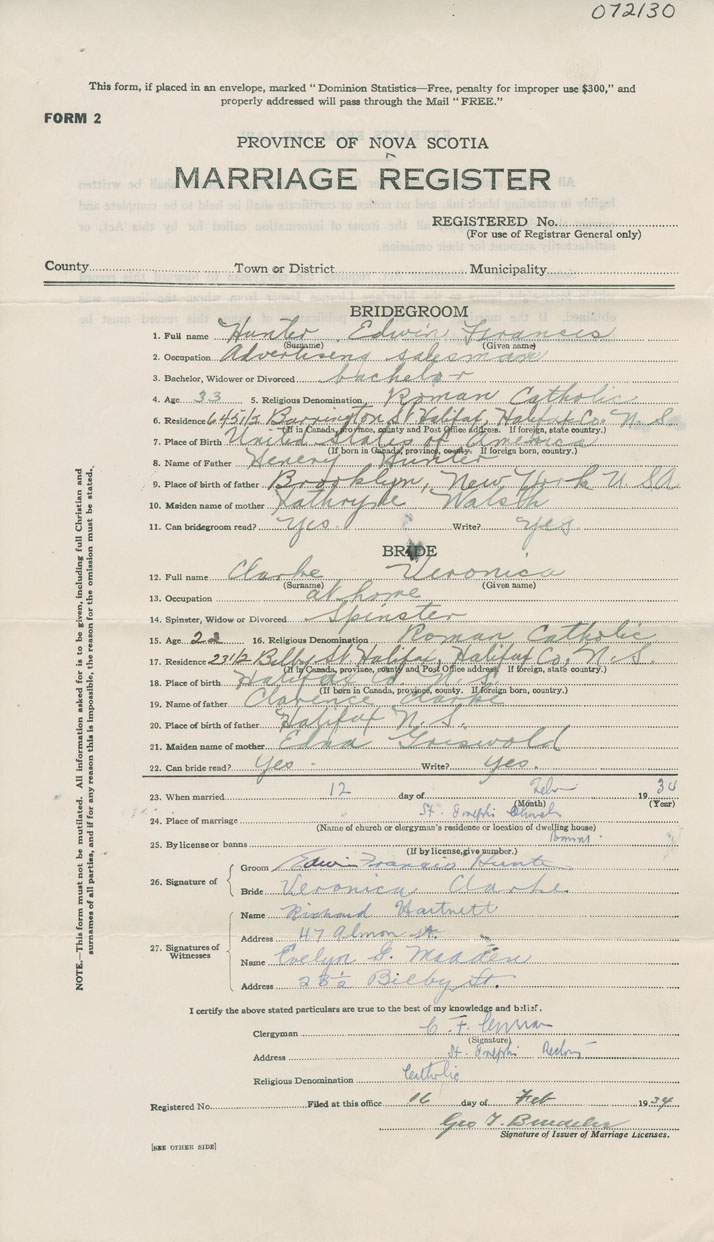 072130
This form, if placed in an envelope, marked "Dominion Statistics—Free, penalty for improper use $300," and
properly addressed will pass through the Mail "FREE."
FORM 2
PROVINCE OF NOVA SCOTIA
MARRIAGE REGISTER
REGISTERED No.
(For use of Registrar General only)
County Town or District Municipality
BRIDEGROOM
1. Full name Hunter Edwin Francis
(Surname) (Given name)
2. Occupation Advertising salesman
3. Bachelor, Widower or Divorced bachelor
4. Age 33 5. Religious Denomination Roman Catholic
6. Residence 645 1/2 Barrington St Halifax, Halifax Co, N. S.
(If in Canada, province, county and Post Office address. If foreign, state country.)
7. Place of Birth United States of America
(If born in Canada, province, county. If foreign born, country.)
8. Name of Father Henery Hunter
9. Place of birth of father Brooklyn, New York U SA
10. Maiden name of mother Kathryne Walsh
11. Can bridegroom read? Yes. Write? Yes
BRIDE
12. Full name Clarke Veronica
(Surname) (Given name)
13. Occupation at home
14. Spinster, Widow or Divorced Spinster
15. Age 22 16. Religious Denomination Roman Catholic
17. Residence 23 1/2 Bilby St Halifax, Halifax Co, N. S.
(If in Canada, province, county and Post Office address. If foreign, state country.)
18. Place of birth Halifax Co. N. S.
(If born in Canada, province, county. If foreign born, country.)
19. Name of father Clarence Clarke
20. Place of birth of father Halifax N. S.
21. Maiden name of mother Edna Griswold
22. Can bride read? Yes. Write? Yes.
23. When married 12 day of Feb 1934
(Month) (Year)
24. Place of marriage St. Joseph's Church
(Name of church or clergyman's residence or location of dwelling house)
25. By license or banns Banns
(If by license, give number.)
26. Signature of
Groom Edwin Francis Hunter
Bride Veronica Clarke
27. Signatures of Witnesses
Name Richard Hartnett
Address 47 Almon St.
Name Evelyn G. Madden
Address 23 1/2 Bilby St.
I certify the above stated particulars are true to the best of my knowledge and belief.
Clergyman C. F.
(Signature)
Address St. Joseph's Rectory
Religious Denomination Catholic
Registered No. Filed at this office 16 day of Feb 1934
Geo T.
Signature of Issuer of Marriage Licenses.
[SEE OTHER SIDE]
NOTE.—This form must not be mutilated. All information asked for is to be given, including full Christian and
surnames of all parties, and if for any reason this is impossible, the reason for the omission must be stated.